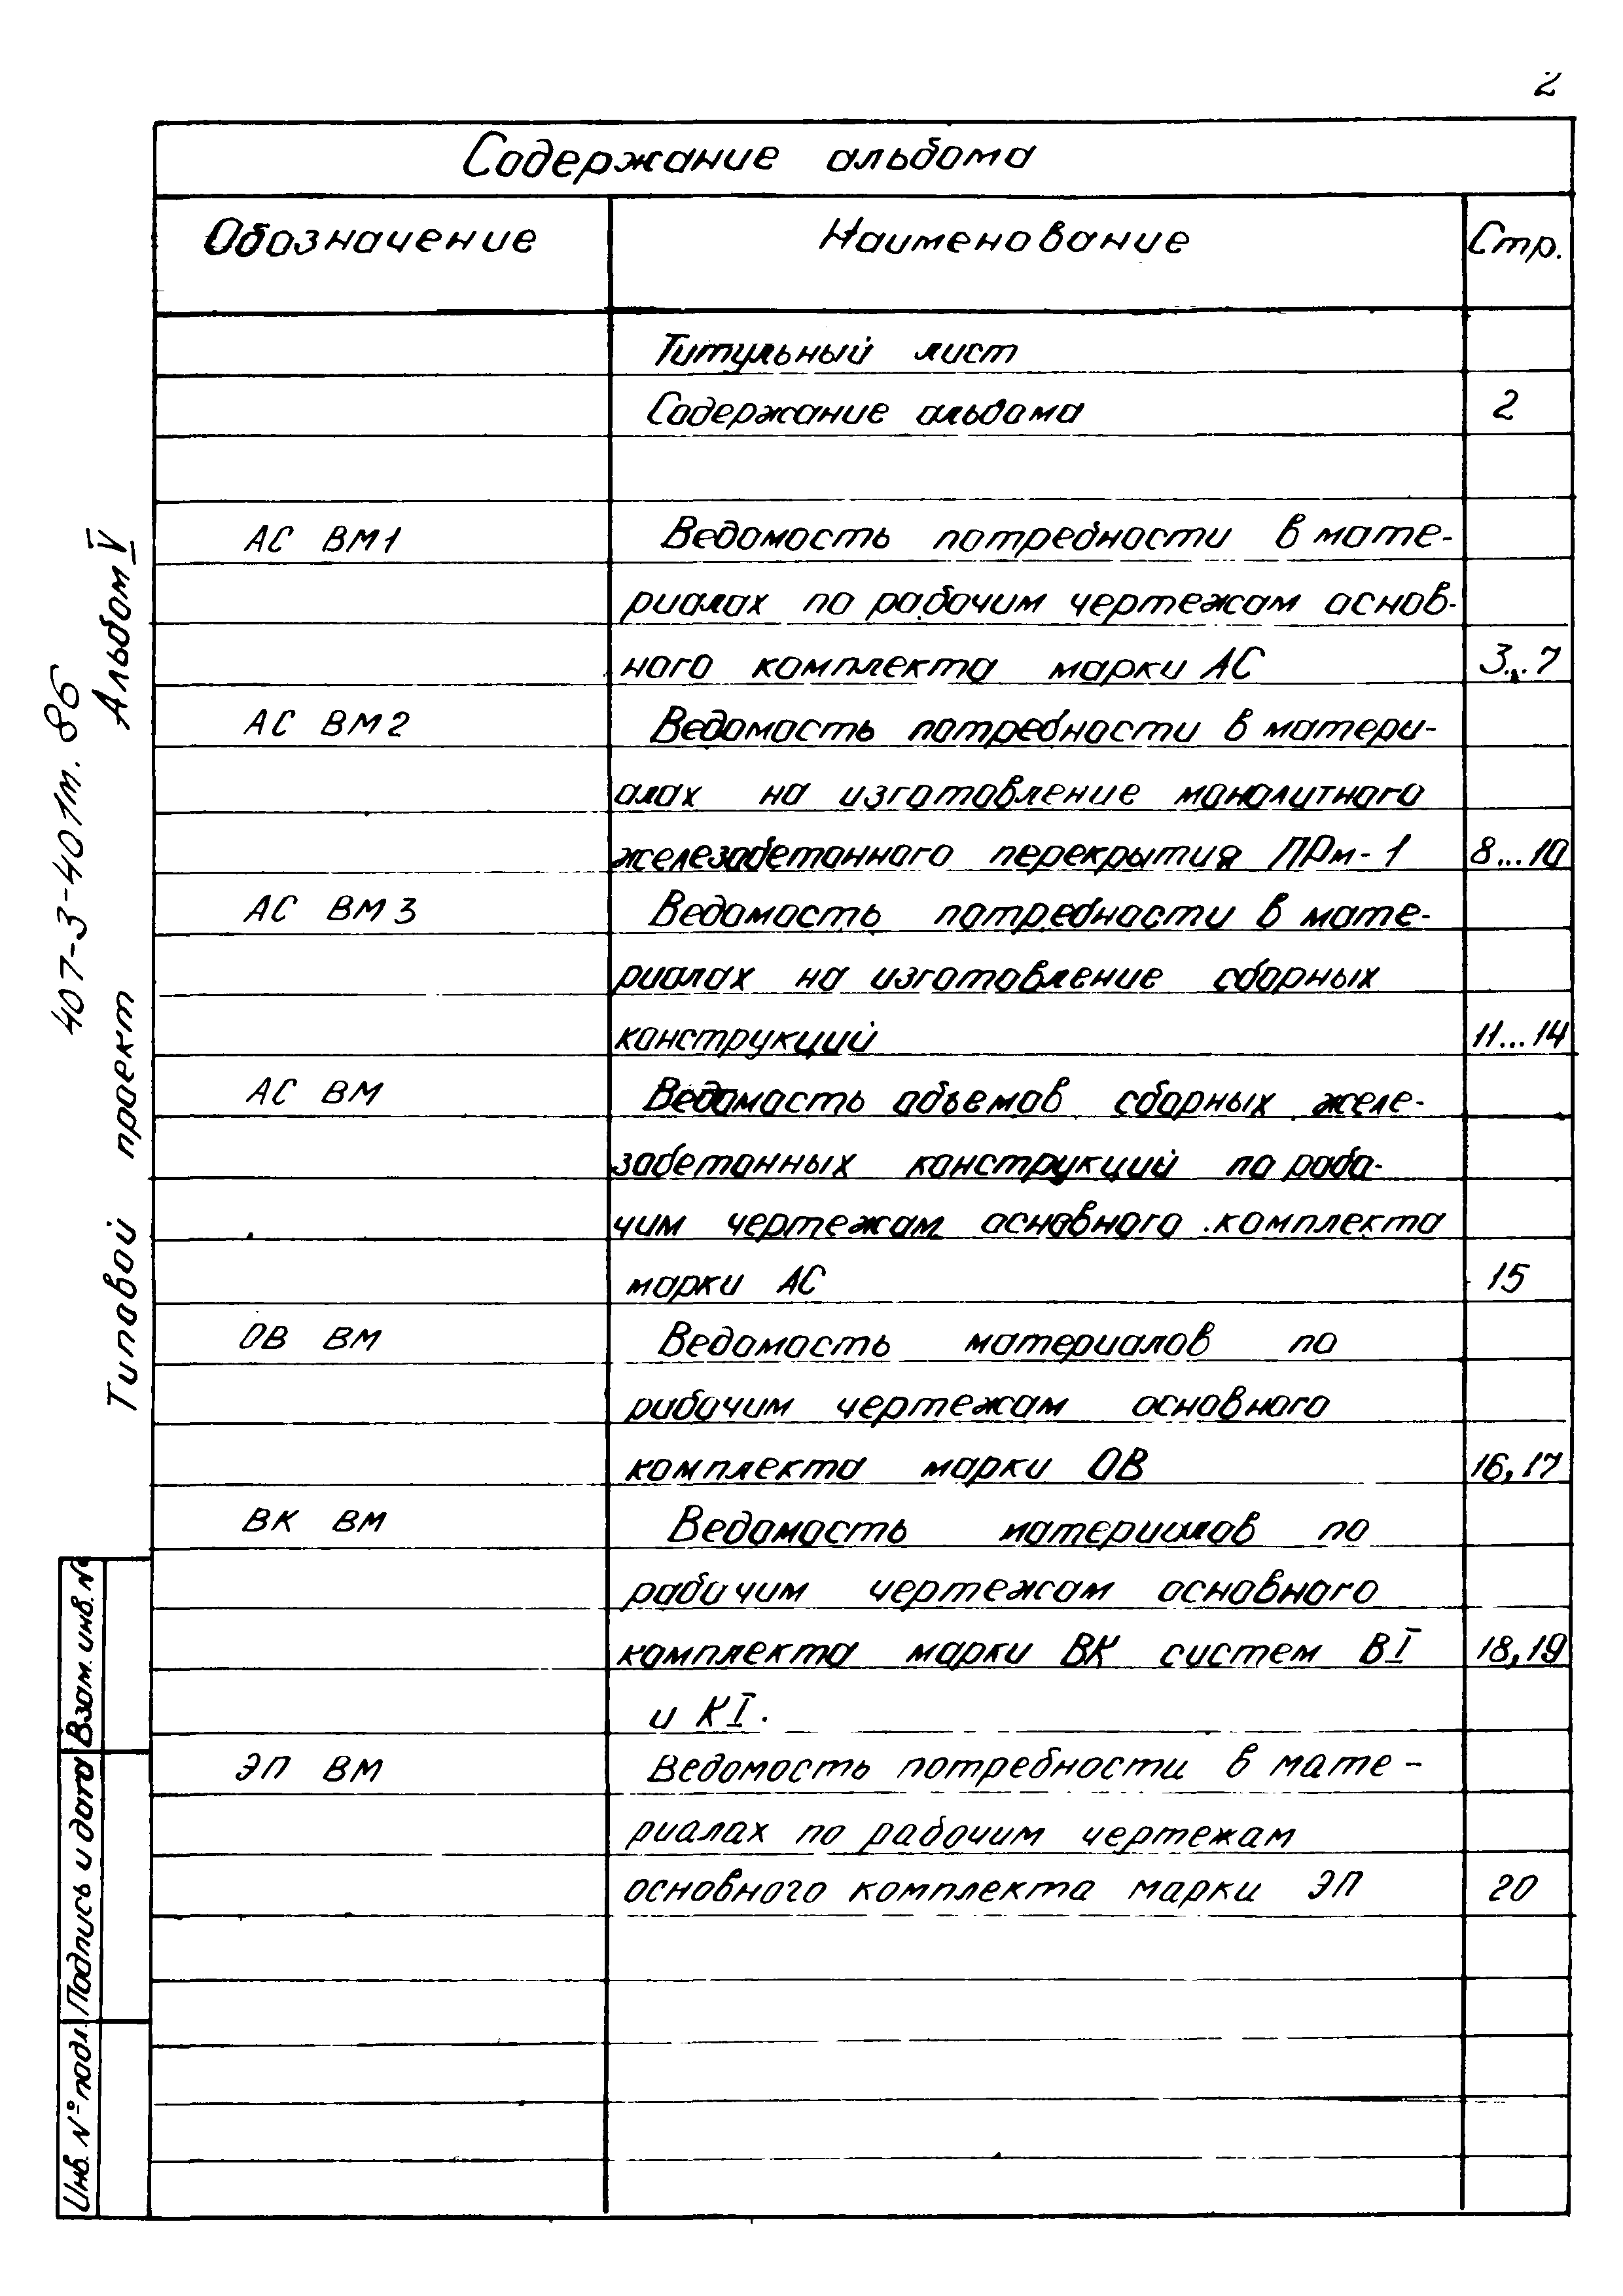 2
Содержание альбома
Обозначение Наименование Стр.
Титульный лист
Содержание альбома 2
АС ВМ1 Ведомость потребности в мате-
риалах по рабочим чертежам основ-
ного комплекта марки АС 3...7
АС ВМ2 Ведомость потребности в матери-
алах на изготовление монолитного
железобетонного перекрытия ПРм-1 8...10
АС ВМ3 Ведомость потребности в мате-
риалах на изготовление сборных
конструкций 11...14
АС ВМ Ведомость объемов сборных желе-
зобетонных конструкций по рабо-
чим чертежам основного комплекта
марки АС 15
ОВ ВМ Ведомость материалов по
рабочим чертежам основного
комплекта марки ОВ 16,17
ВК ВМ Ведомость материалов по
рабочим чертежам основного
комплекта марки ВК систем ВI 18,19
и КI.
ЭП ВМ Ведомость потребности в мате-
риалах по рабочим чертежам
основного комплекта марки ЭП 20
Типовой проект 407-3-401м.86 Альбом V
Взам. инв. №
Подпись и дата
Инв. № подл.